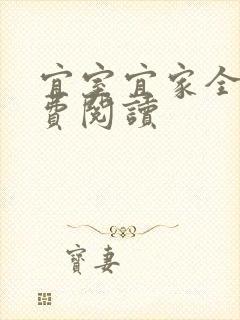 宜室宜家全
費閱讀
寶妻